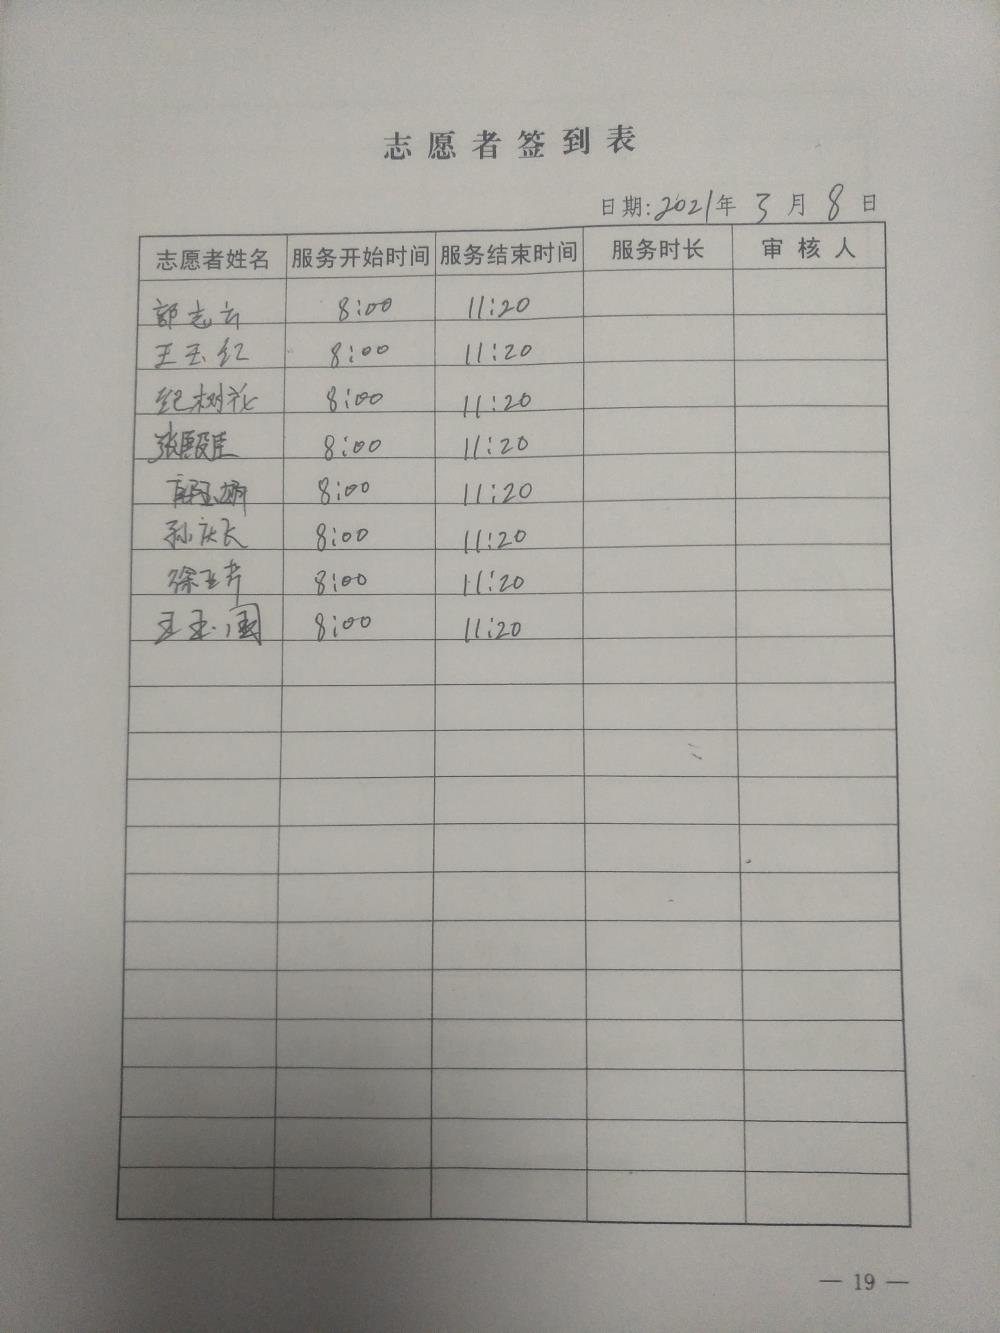 志愿者签到表
日期:2021年3月8日
志愿者姓名 服务开始时间 服务结束时间 服务时长 审核人
郭志云 8:00 11:20
王玉红 8:00 11:20
纪树花 8:00 11:20
张殿臣 8:00 11:20
8:00 11:20
孙庆长 8:00 11:20
徐玉芹 8:00 11:20
王玉国 8:00 11:20
— 19 —